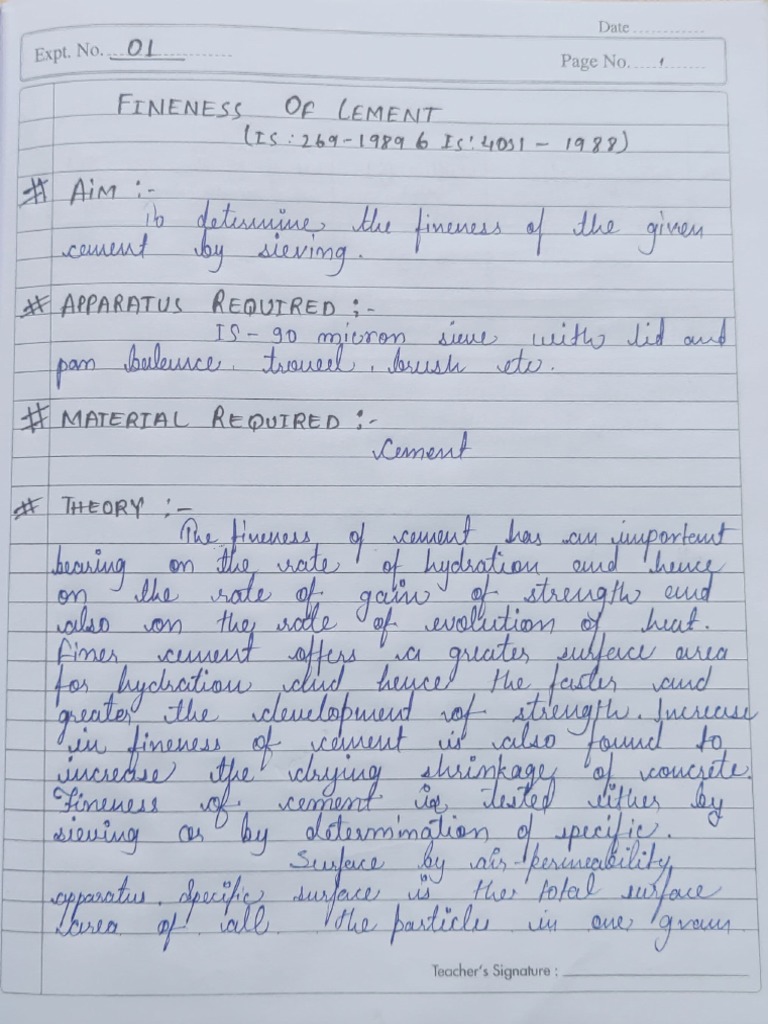 Date
Expt. No. 01
Page No. 1
FINENESS OF CEMENT
(IS : 269-1989 & IS : 4031 - 1988)
# AIM :-
To determine the fineness of the given
cement by sieving.
# APPARATUS REQUIRED :-
IS - 90 micron sieve with lid and
pan balance, trowel, brush etc.
# MATERIAL REQUIRED :-
cement
# THEORY :-
The fineness of cement has an important
bearing on the rate of hydration and hence
on the rate of gain of strength and
also on the rate of evolution of heat.
Finer cement offers a greater surface area
for hydration and hence the faster and
greater the development of strength. Increase
in fineness of cement is also found to
increase the drying shrinkage of concrete.
Fineness of cement is tested either by
sieving or by determination of specific.
Surface by air-permeability
apparatus. Specific surface is the total surface
area of all the particles in one gram
Teacher's Signature :